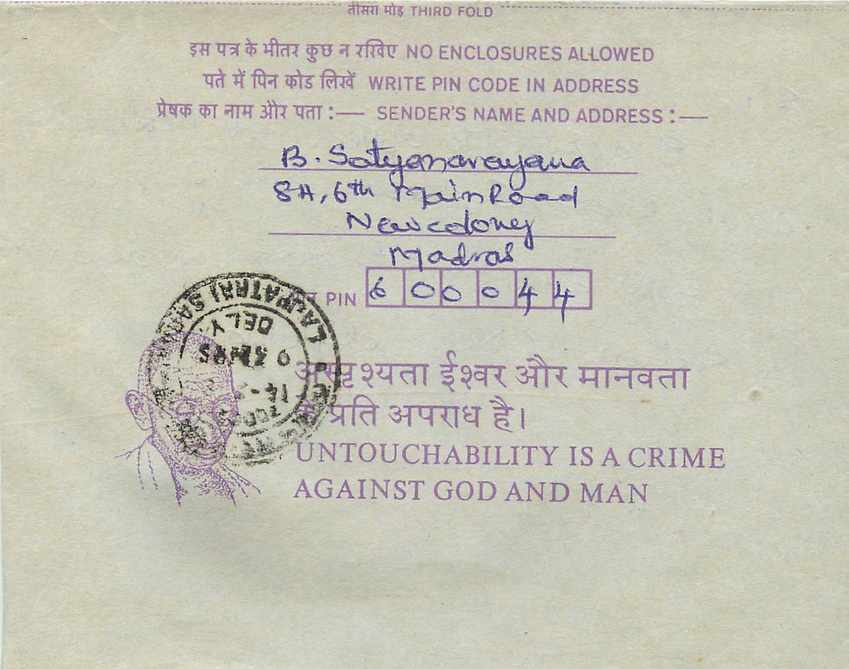 तीसरा मोड़ THIRD FOLD
इस पत्र के भीतर कुछ न रखिए NO ENCLOSURES ALLOWED
पते में पिन कोड लिखें WRITE PIN CODE IN ADDRESS
प्रेषक का नाम और पता :— SENDER'S NAME AND ADDRESS :—
B. Satyanarayana
8A, 6th Main Road
New colony
Madras
PIN 600044
LAJPATRAI
DELY
अस्पृश्यता ईश्वर और मानवता
के प्रति अपराध है।
UNTOUCHABILITY IS A CRIME
AGAINST GOD AND MAN